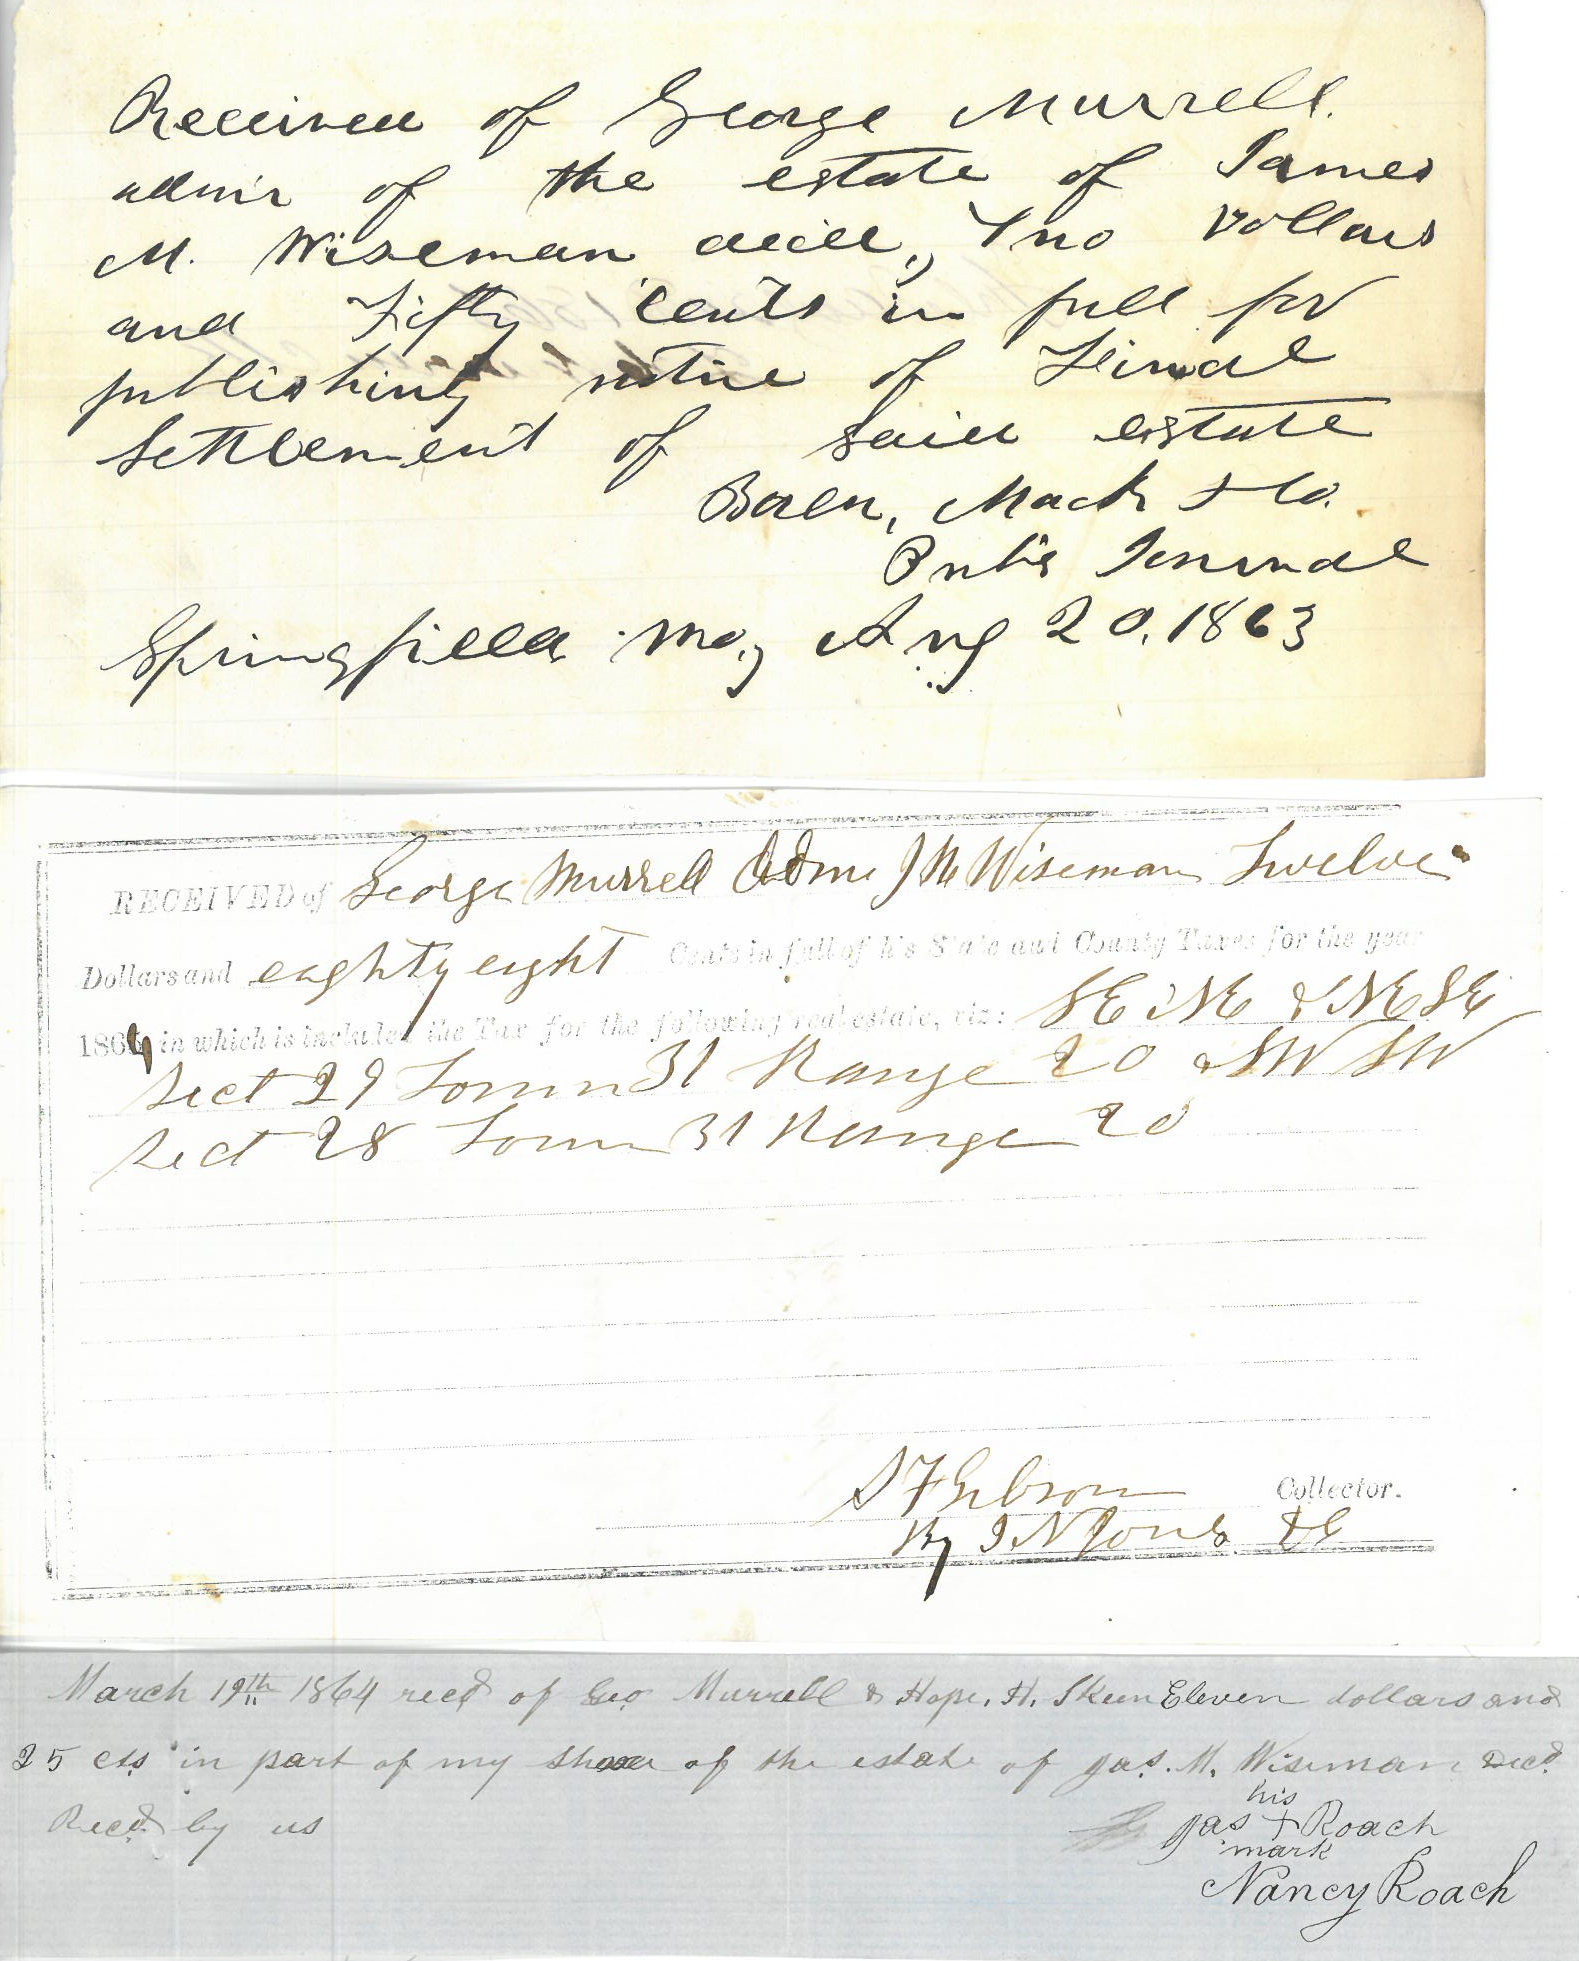 Received of George Murrell.
admr of the estate of James
M. Wiseman decd, Two Dollars
and Fifty cents in full for
publishing notice of Final
Settlement of said estate
Boren, Mack & Co.
Pub's Journal
Springfield Mo, Aug 20, 1863
RECEIVED of George Murrell Adm J M Wiseman Twelve
Dollars and eighty eight Cents in full of his State and County Taxes for the year
1864 in which is included the Tax for the following real estate, viz: SE NE & NE SE
Sect 29 Town 31 Range 20 & SW SW
Sect 28 Town 31 Range 20
S F Gibson Collector.
By J N Jones DC
March 19th 1864 recd of Geo Murrell & Hope. H. Skeen Eleven dollars and
25 cts in part of my share of the estate of Jas. M. Wiseman Decd
Recd by us
his
Jas + Roach
mark
Nancy Roach